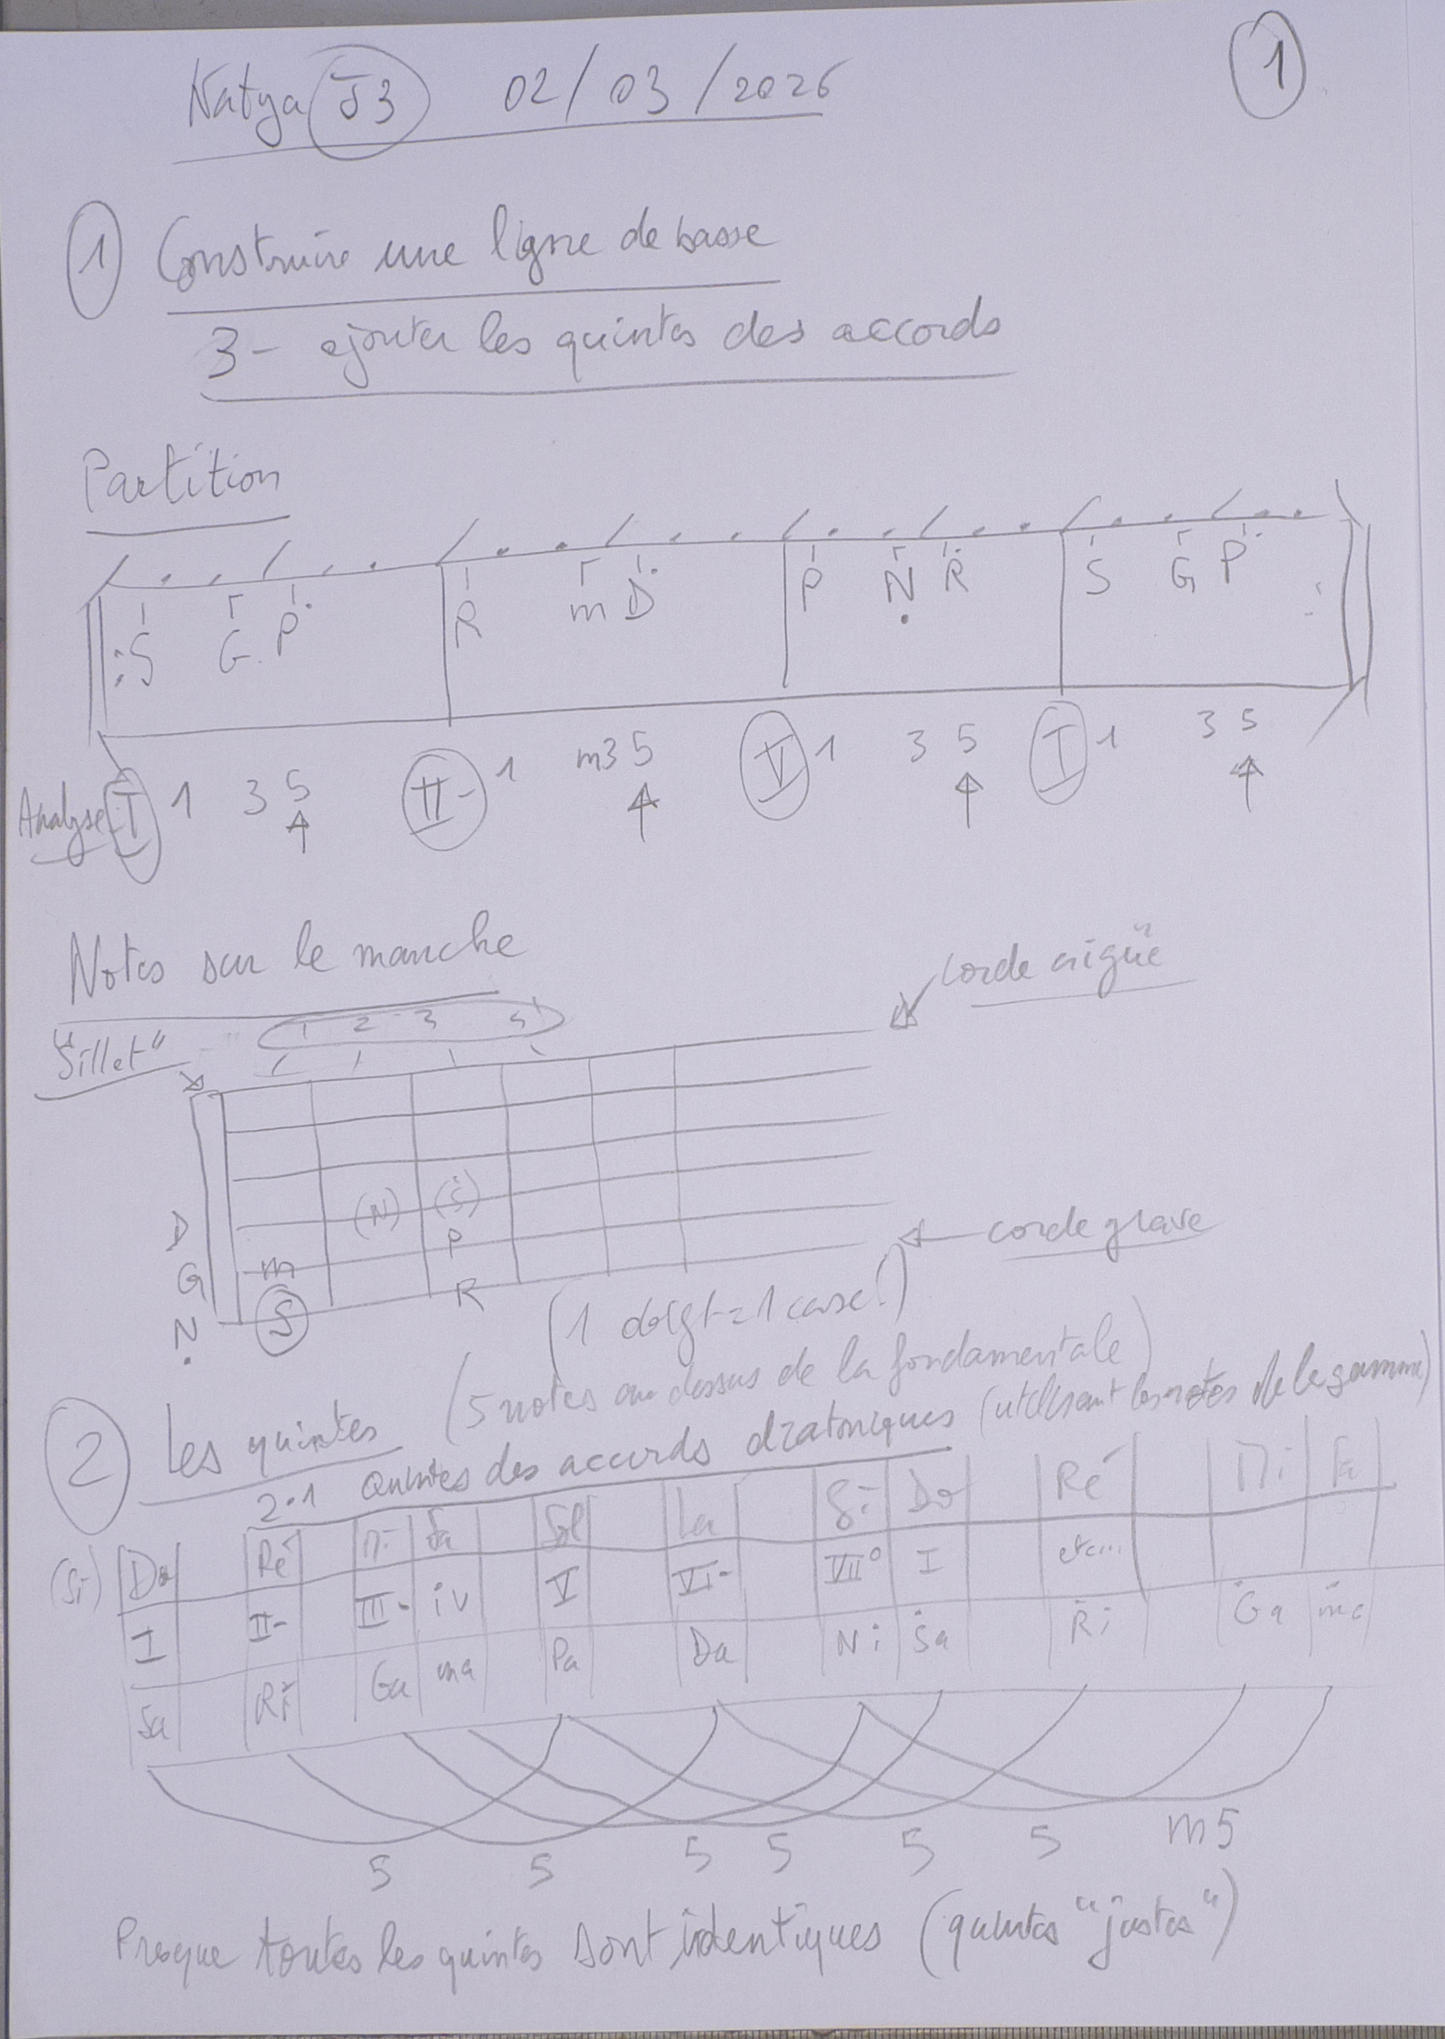 Natya J3 02/03/2026
1
1 Construire une ligne de basse
3- ajouter les quintes des accords
Partition
:S G P R m D P N R S G P
Analyse I 1 3 5 II- 1 m3 5 V 1 3 5 I 1 3 5
Notes sur le manche
corde aigüe
"Sillet"
1 2 3 4
D (N) (S)
G m P
N S R
corde grave
(1 doigt = 1 case!)
2 Les quintes (5 notes au dessus de la fondamentale)
2.1 Quintes des accords diatoniques (utilisant les notes de la gamme)
(Si) Do Ré Mi Fa Sol La Si Do Ré Mi Fa
I II- III- iv V VI- VII° I etc...
Sa Ri Ga ma Pa Da Ni Sa Ri Ga ma
5 5 5 5 5 5 m5
Presque toutes les quintes sont identiques (quintes "justes")